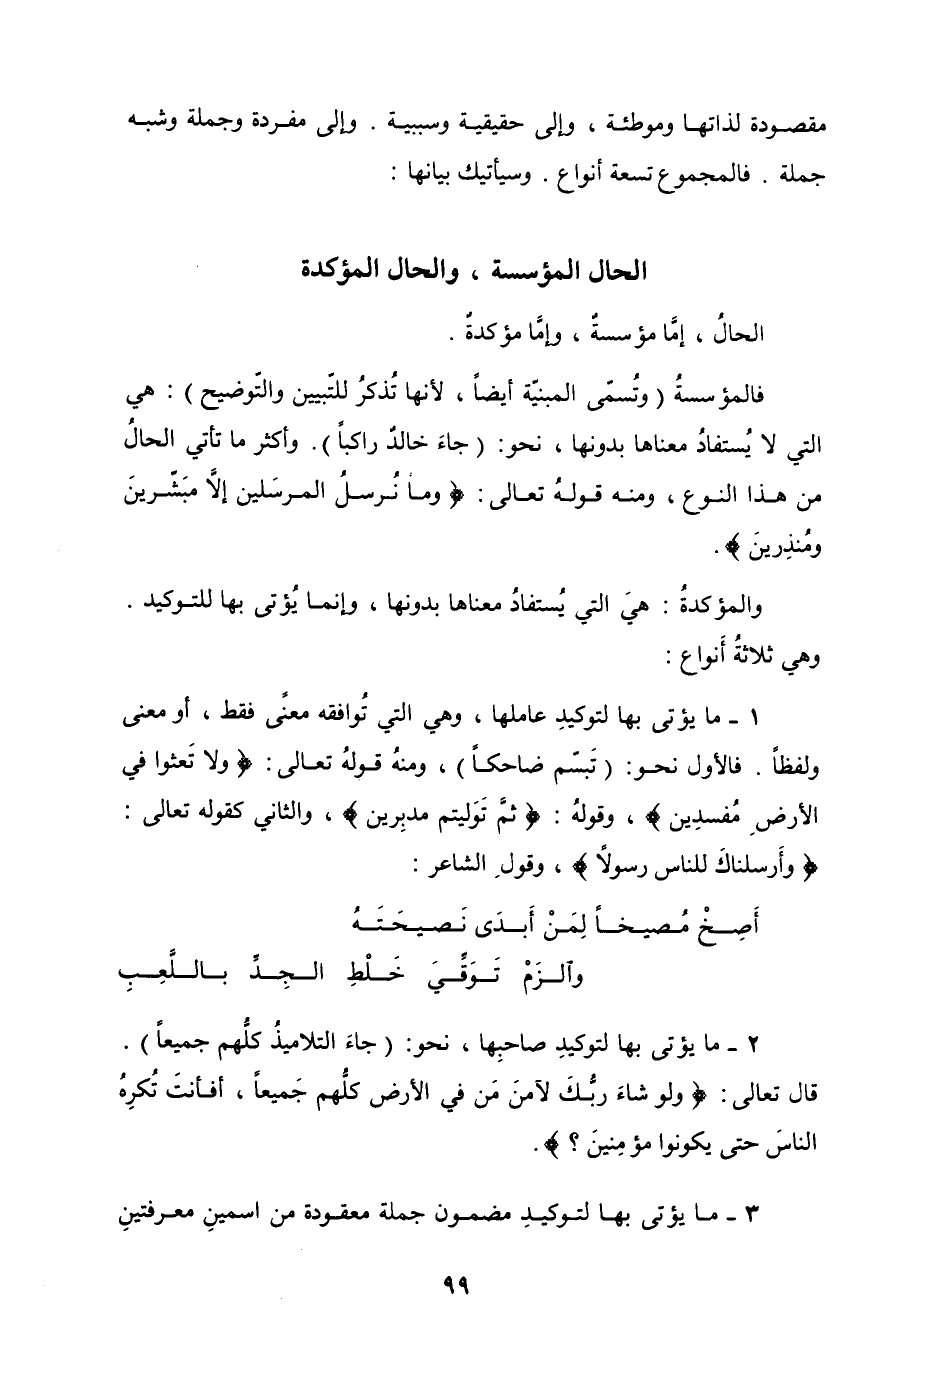 مقصودة لذاتها وموطئة ، وإلى حقيقية وسببية . وإلى مفردة وجملة وشبه
جملة . فالمجموع تسعة أنواع . وسيأتيك بيانها :
الحال المؤسسة ، والحال المؤكدة
الحالُ ، إمَّا مؤسسةٌ ، وإمَّا مؤكدةٌ .
فالمؤسسةُ ( وتُسمّى المبنيّة أيضاً ، لأنها تُذكرُ للتّبيين والتّوضيح ) : هي
التي لا يُستفادُ معناها بدونها ، نحو: ( جاءَ خالدٌ راكباً ). وأكثر ما تأتي الحالُ
من هذا النوع ، ومنه قولهُ تعالى : ﴿ وما نُرسلُ المرسَلين إلاَّ مبَشّرينَ
ومُنذِرينَ ﴾ .
والمؤكدةُ : هيَ التي يُستفادُ معناها بدونها ، وإنما يُؤتى بها للتوكيد .
وهي ثلاثةُ أَنواع :
١ - ما يؤتى بها لتوكيدِ عاملها ، وهي التي تُوافقه معنًى فقط ، أو معنى
ولفظاً . فالأول نحو: ( تَبسّم ضاحكاً ) ، ومنهُ قولهُ تعالى : ﴿ ولا تَعثوا في
الأرضِ مُفسدِين ﴾ ، وقولهُ : ﴿ ثمَّ تَوَليتم مدبِرين ﴾ ، والثاني كقوله تعالى :
﴿ وأَرسلناكَ للناس رسولاً ﴾ ، وقولِ الشاعر :
أَصِخْ مُصيخاً لِمَنْ أَبدَى نَصيحَتَهُ
وٱلزَمْ تَوَقِّيَ خَلْطِ الجِدِّ باللَّعِبِ
٢ - ما يؤتى بها لتوكيدِ صاحبِها ، نحو: ( جاءَ التلاميذُ كلُّهم جميعاً ) .
قال تعالى : ﴿ ولو شاءَ ربُّكَ لآمنَ مَن في الأرض كلُّهم جَميعاً ، أفأنتَ تُكرِهُ
الناسَ حتى يكونوا مؤمِنينَ ؟ ﴾ .
٣ - ما يؤتى بها لتوكيدِ مضمون جملة معقودة من اسمينِ معرفتينِ
٩٩